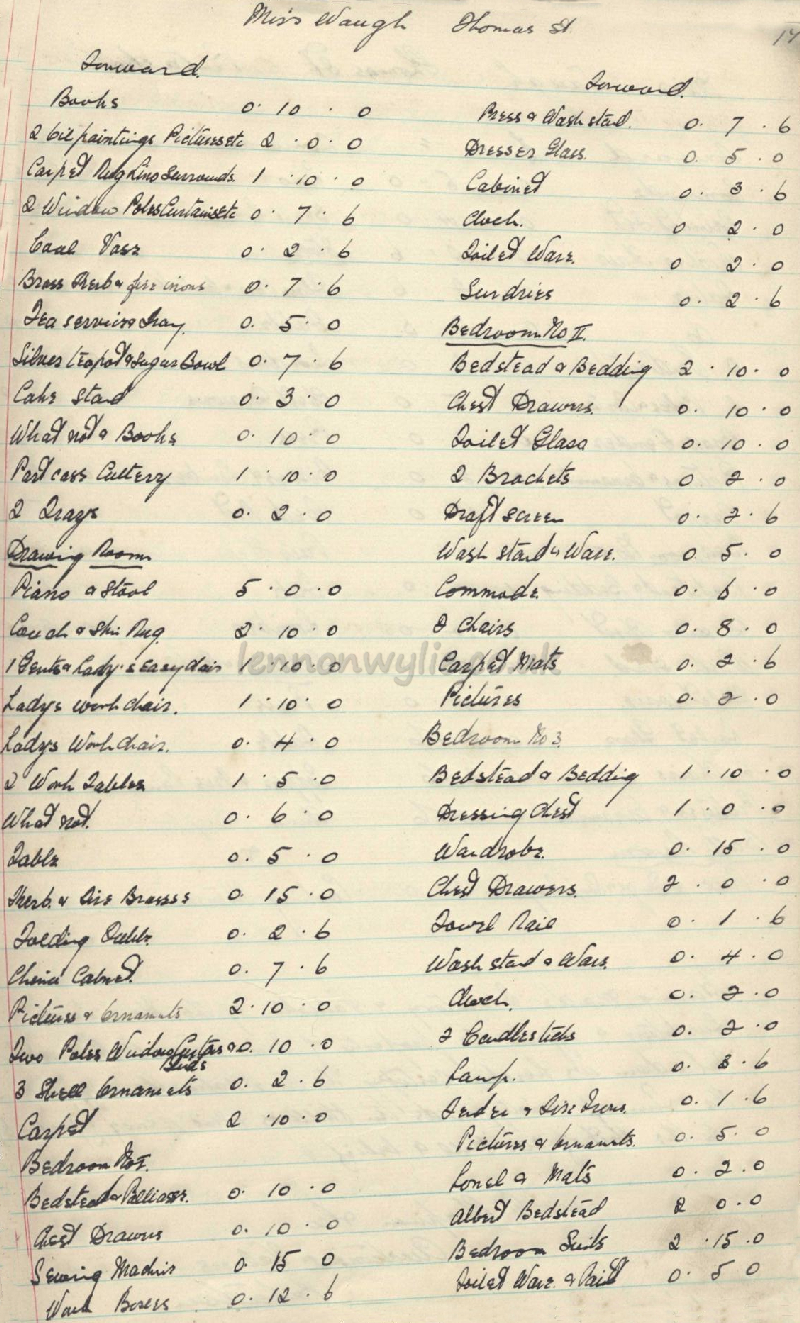 Miss Waugh Thomas St
17
Forward.
Books 0. 10. 0
2 Oil paintings Pictures etc 2. 0. 0
Carpet Rug Lino Surrounds 1. 10. 0
2 Window Poles Curtains etc 0. 7. 6
Coal Vase 0. 2. 6
Brass Kerb & fire irons 0. 7. 6
Tea service & Tray 0. 5. 0
Silver teapot & Sugar Bowl 0. 7. 6
Cake Stand 0. 3. 0
What not & Books 0. 10. 0
Part case Cutlery 1. 10. 0
2 Trays 0. 2. 0
Drawing Room
Piano & Stool 5. 0. 0
Couch & Skin Rug 2. 10. 0
1 Gents & Lady's Easy chair 1. 10. 0
Ladys work chair. 1. 10. 0
Ladys Work chair. 0. 4. 0
2 Work Tables 1. 5. 0
What not. 0. 6. 0
Table 0. 5. 0
Kerb & Fire Brasses 0 15. 0
Folding Table 0. 2. 6
China Cabnet. 0. 7. 6
Pictures & Ornamets 2. 10. 0
Two Poles Window Curtains & 0. 10. 0
Blinds
3 Shell Ornamets 0. 2. 6
Carpet 2. 10. 0
Bedroom No I.
Bedstead & Palliasse. 0. 10. 0
Chest Drawers 0. 10. 0
Sewing Machine 0. 15 0
Work Boxes 0. 12. 6
Forward.
Press & Wash stand 0. 7. 6
Dresser Glass. 0. 5. 0
Cabinet 0. 3. 6
Clock. 0 2. 0
Toilet Ware. 0 2. 0
Sundries 0. 2. 6
Bedroom No II.
Bedstead & Bedding 2. 10. 0
Chest Drawers. 0. 10. 0
Toilet Glass 0. 10. 0
2 Brackets 0 2. 0
Draft Screen 0. 2. 6
Wash stand & Ware. 0 5. 0
Commode. 0. 6. 0
2 Chairs 0. 8. 0
Carpet Mats 0. 2. 6
Pictures 0. 2. 0
Bedroom No 3.
Bedstead & Bedding 1. 10. 0
Dressing Chest 1. 0. 0
Wardrobe. 0. 15. 0
Chest Drawers. 2. 0. 0
Towel Rail 0. 1. 6
Wash stand & Ware. 0. 4. 0
Clock. 0. 2. 0
2 Candlesticks 0. 2. 0
Lamp. 0. 3. 6
Fender & Fire Irons. 0. 1. 6
Pictures & Ornamets. 0. 5. 0
& Mats 0. 2. 0
Albert Bedstead 2 0. 0
Bedroom Suite 2. 15. 0
Toilet Ware & Pail 0. 5 0
lennonwylie.co.uk